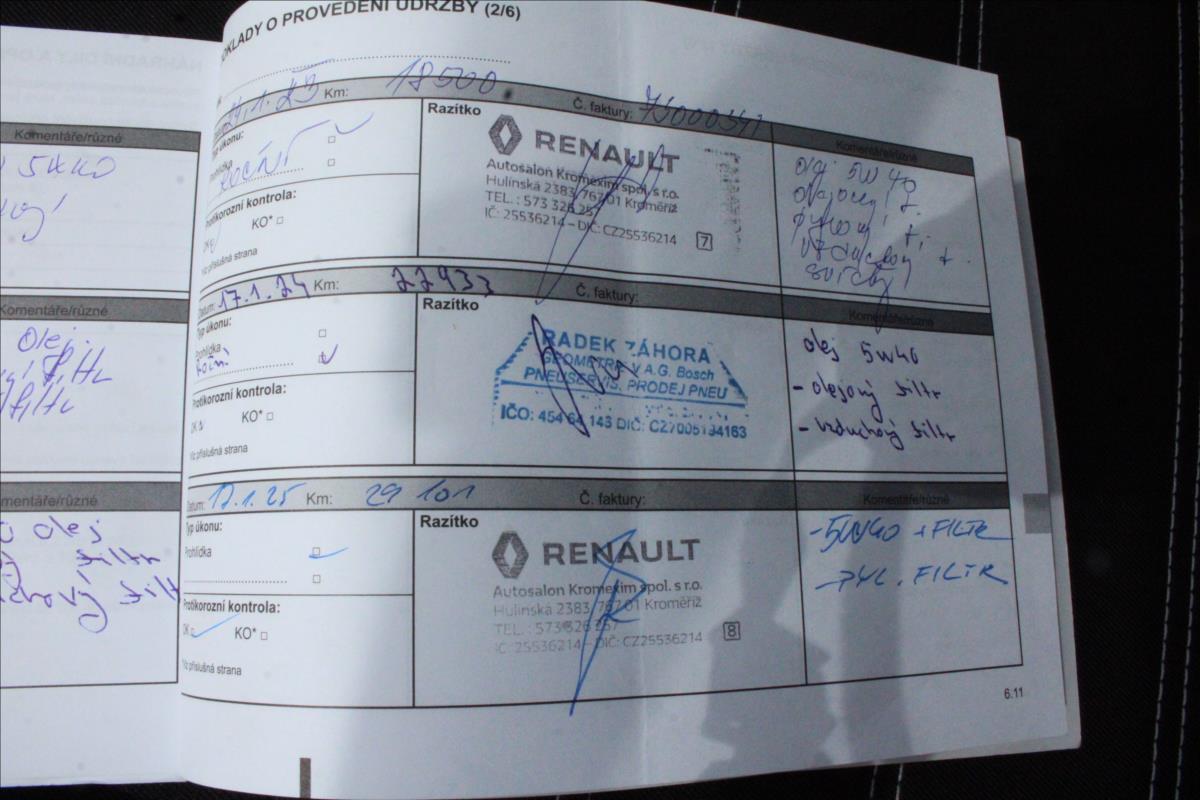 Komentáře/různé
5W40
Komentáře/různé
olej.
filtr
filtr
mentáře/různé
olej
filtr
filt
OKLADY O PROVEDENÍ ÚDRŽBY (2/6)
1. 23 Km: 18500 Č. faktury:
Typ úkonu:
Prohlídka
ROČNÍ
Protikorozní kontrola:
OK KO*
Viz příslušná strana
Razítko
RENAULT
Autosalon Kromexim spol. s r.o.
Hulínská 2383, 767 01 Kroměříž
TEL.: 573 326 257
IČ: 25536214 – DIČ: CZ25536214 7
Komentáře/různé
olej 5W40
olejový f.
pylový f.
vzduchový f.
svíčky
Datum: 17.1.24 Km: 22933 Č. faktury:
Typ úkonu:
Prohlídka
Roční
Protikorozní kontrola:
OK KO*
Viz příslušná strana
Razítko
RADEK ZÁHORA
GEOMETRIE V A.G. Bosch
PNEUSERVIS, PRODEJ PNEU
IČO: 454 64 143 DIČ: CZ7005194163
Komentáře/různé
olej 5W40
- olejový filtr
- vzduchový filtr
Datum: 17.1.25 Km: 29 101 Č. faktury:
Typ úkonu:
Prohlídka
Protikorozní kontrola:
OK KO*
Viz příslušná strana
Razítko
RENAULT
Autosalon Kromexim spol. s r.o.
Hulínská 2383, 767 01 Kroměříž
TEL.: 573 326 257
IČ: 25536214 – DIČ: CZ25536214 8
Komentáře/různé
-5W40 + FILTR
-PYL. FILTR
6.11